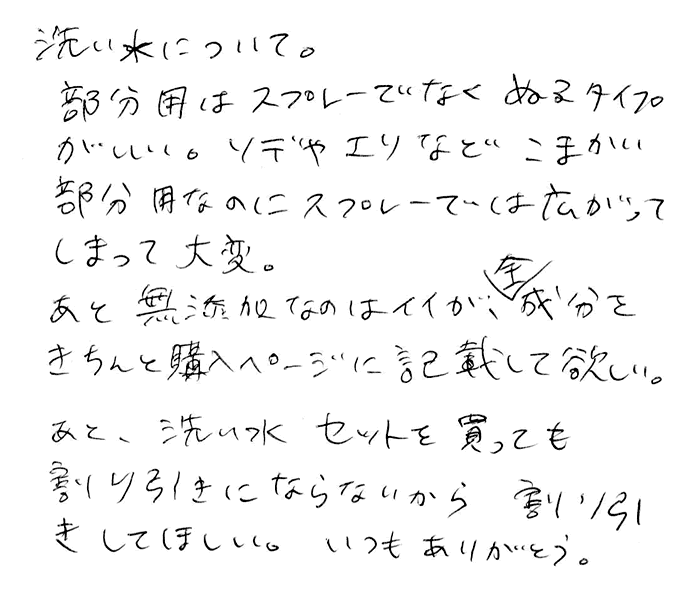 洗い水について。
部分用はスプレーでなく ぬるタイプ
がいい。ソデやエリなど こまかい
部分用なのにスプレーでは広がって
しまって大変。
あと無添加なのはイイが、全成分を
きちんと購入ページに記載して欲しい。
あと、洗い水 セットを買っても
割り引きにならないから 割り引
きしてほしい。いつもありがとう。